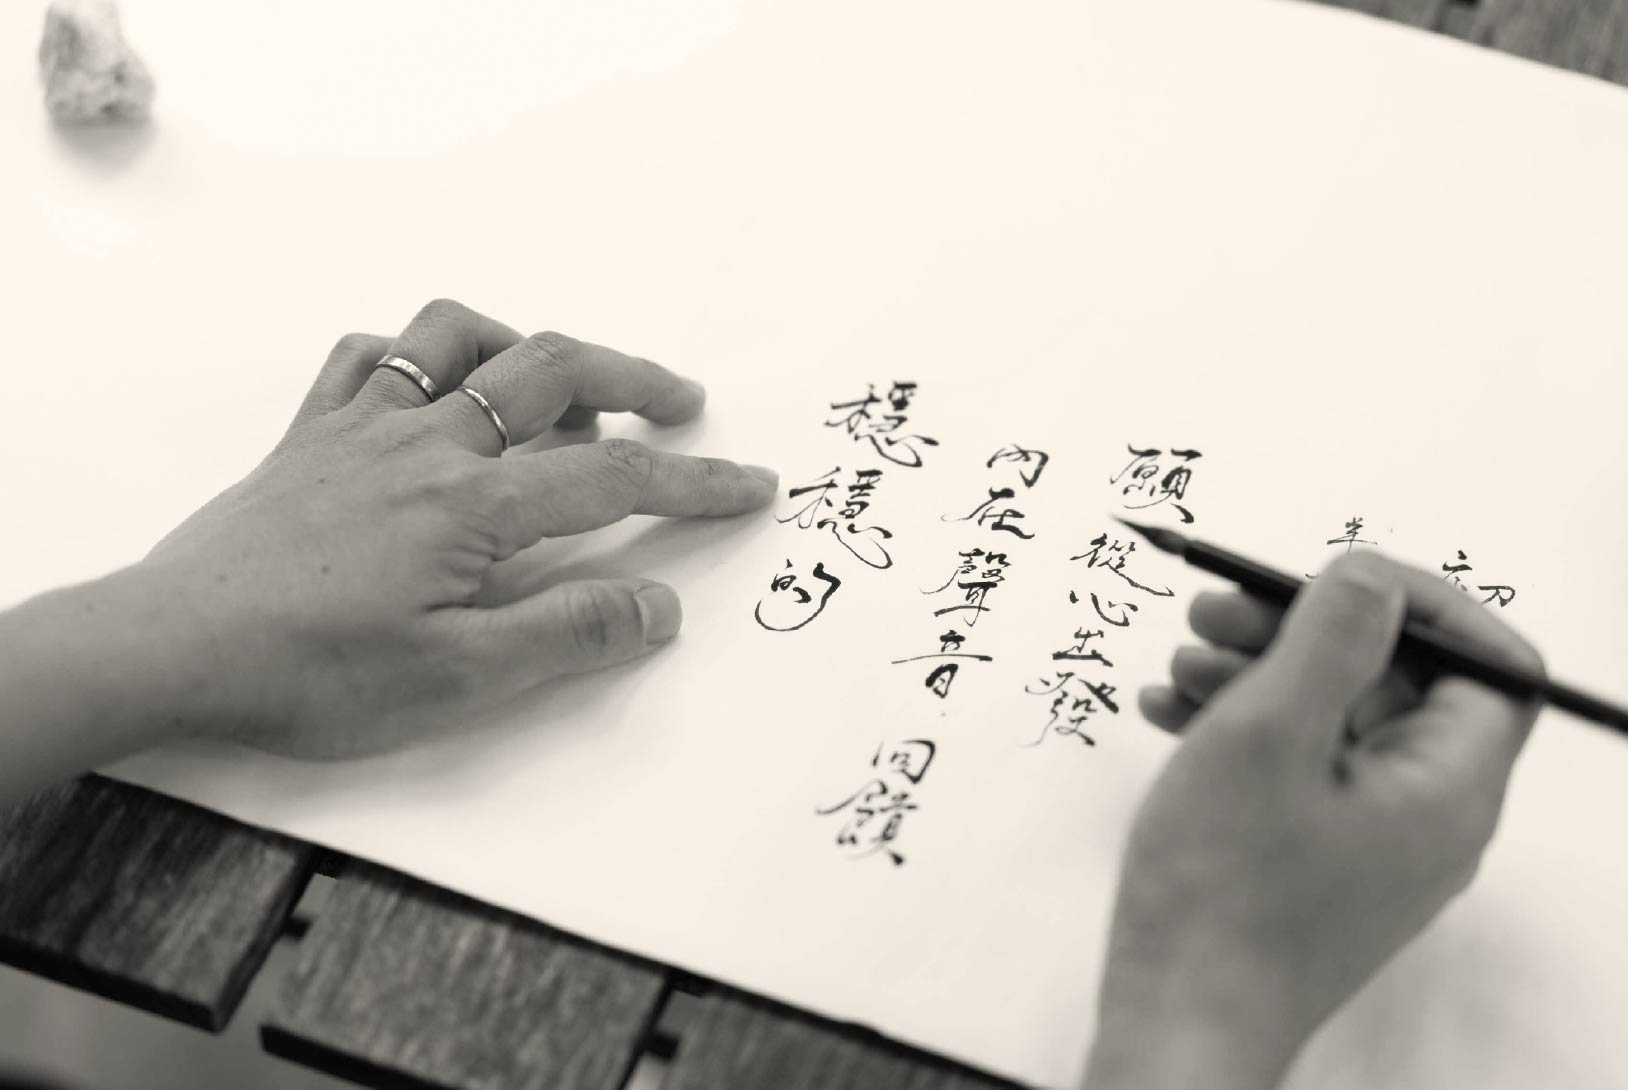 初衣
願從心出發
內在聲音回饋
穩穩的